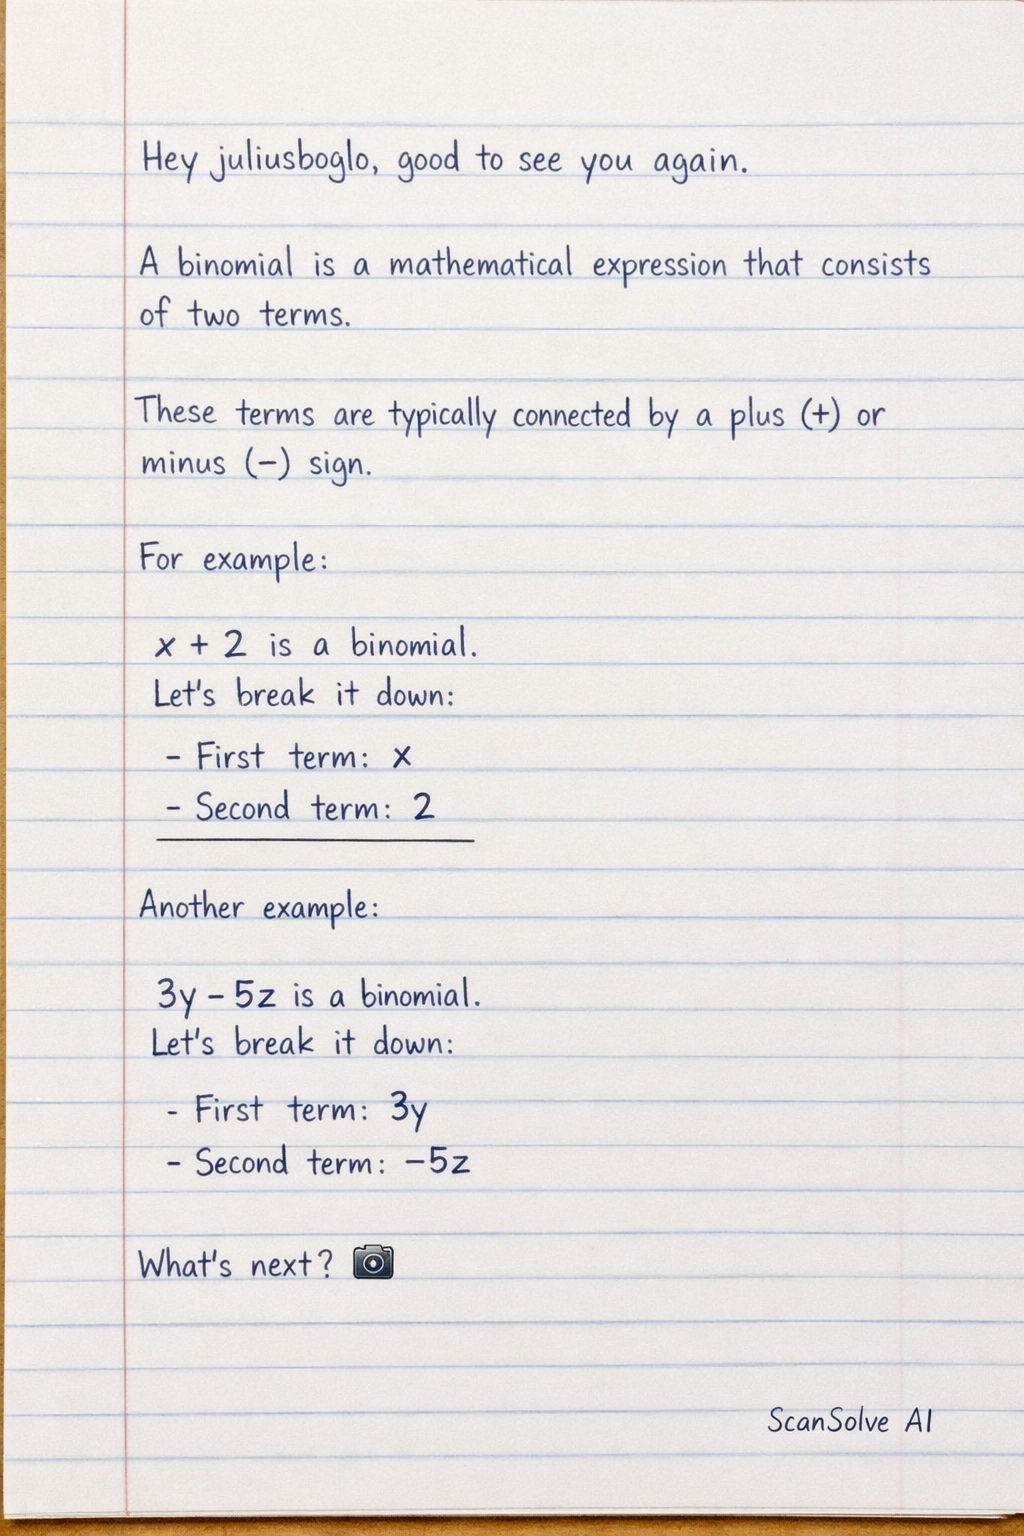 Hey juliusboglo, good to see you again.
A binomial is a mathematical expression that consists
of two terms.
These terms are typically connected by a plus (+) or
minus (−) sign.
For example:
x + 2 is a binomial.
Let's break it down:
- First term: x
- Second term: 2
Another example:
3y − 5z is a binomial.
Let's break it down:
- First term: 3y
- Second term: −5z
What's next? 📷
ScanSolve AI